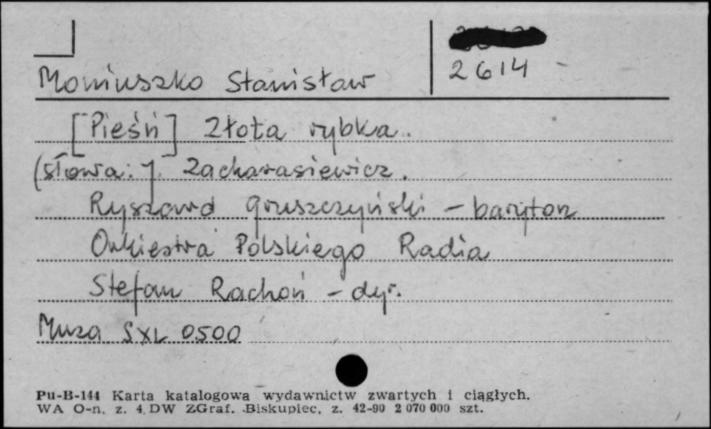 2614
Moniuszko Stanisław
[Pieśń] Złota rybka.
(słowa: J. Zacharasiewicz.
Ryszard Gruszczyński - baryton
Orkiestra Polskiego Radia
Stefan Rachoń - dyr.
Muza SXL 0500
Pu-B-144 Karta katalogowa wydawnictw zwartych i ciągłych.
WA O-n. z. 4. DW ZGraf. Biskupiec, z. 42-90 2 070 000 szt.